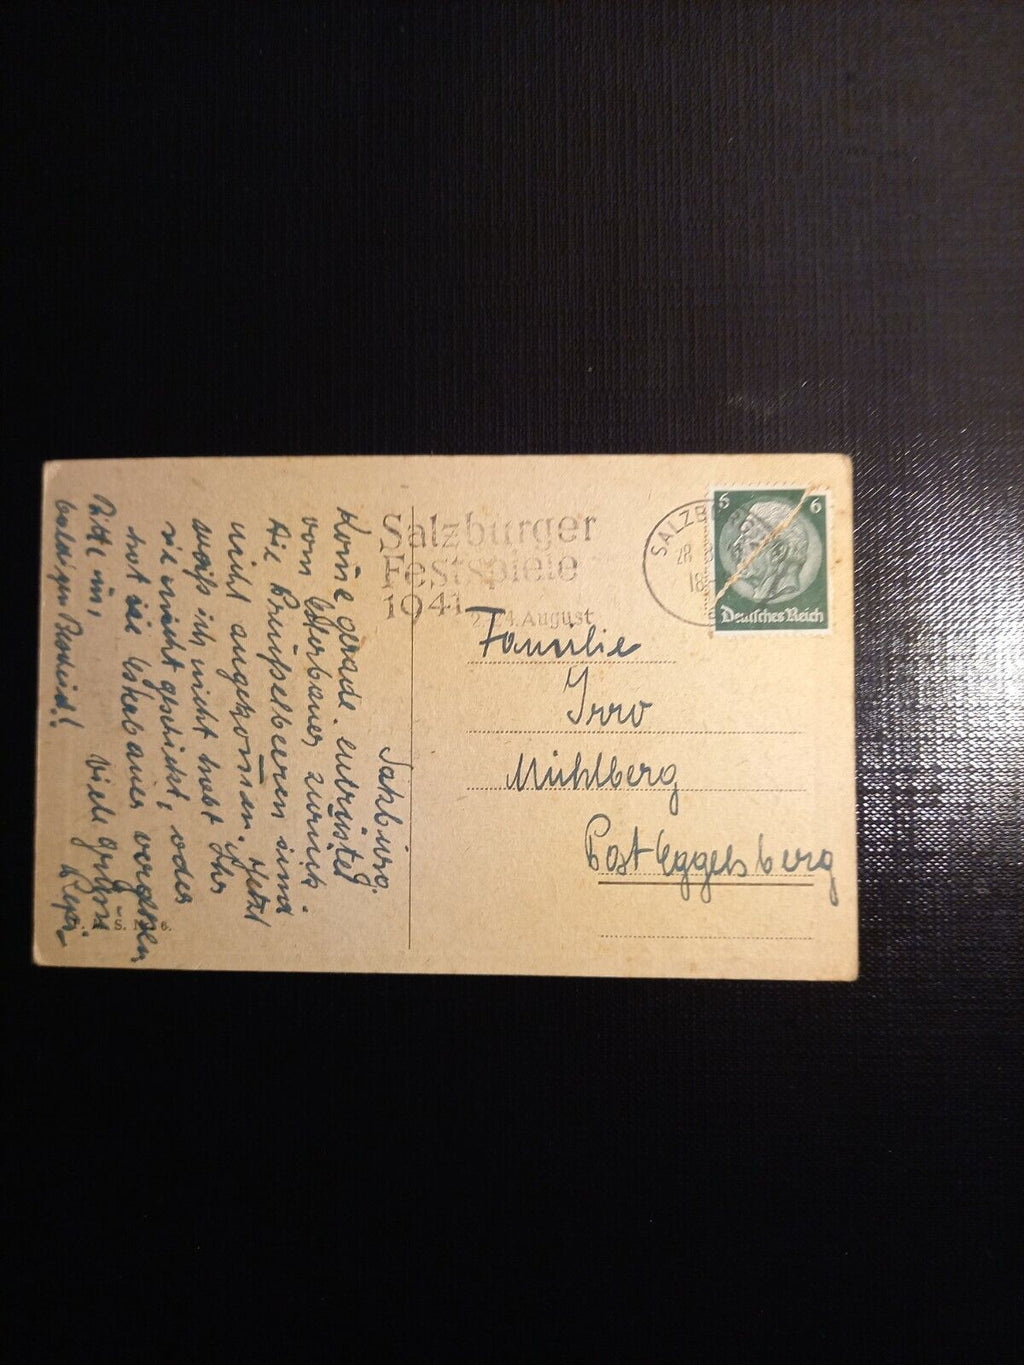 Salzburg.
Komme gerade entrüstet
vom Osterbauer zurück.
die Preußelbeeren sind
nicht angekommen. Jetzt
weiß ich nicht habt Ihr
sie nicht geschickt, oder
hat sie Eskelbauer vergessen
Bitte um
baldigen Bescheid!
Viele Grüße
Pepi
Salzburger
Festspiele
1941 2.-24. August
SALZB
28
18
6 6
Deutsches Reich
Familie
Irro
Mühlberg
Post Eggelsberg